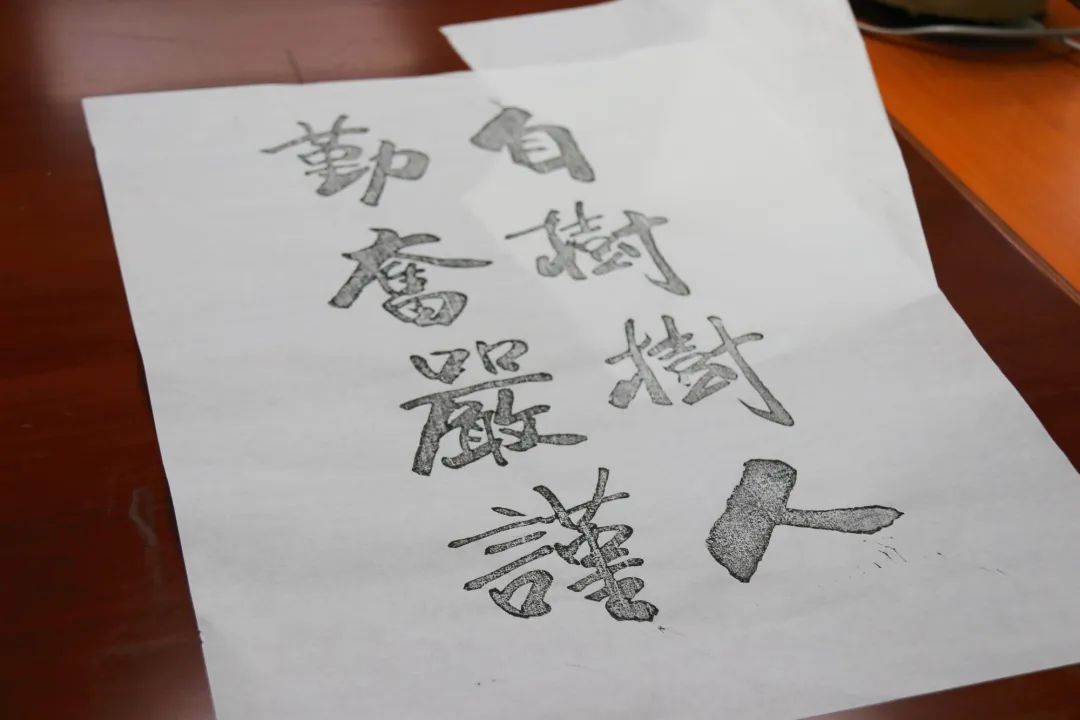 自樹樹人
勤奮嚴謹